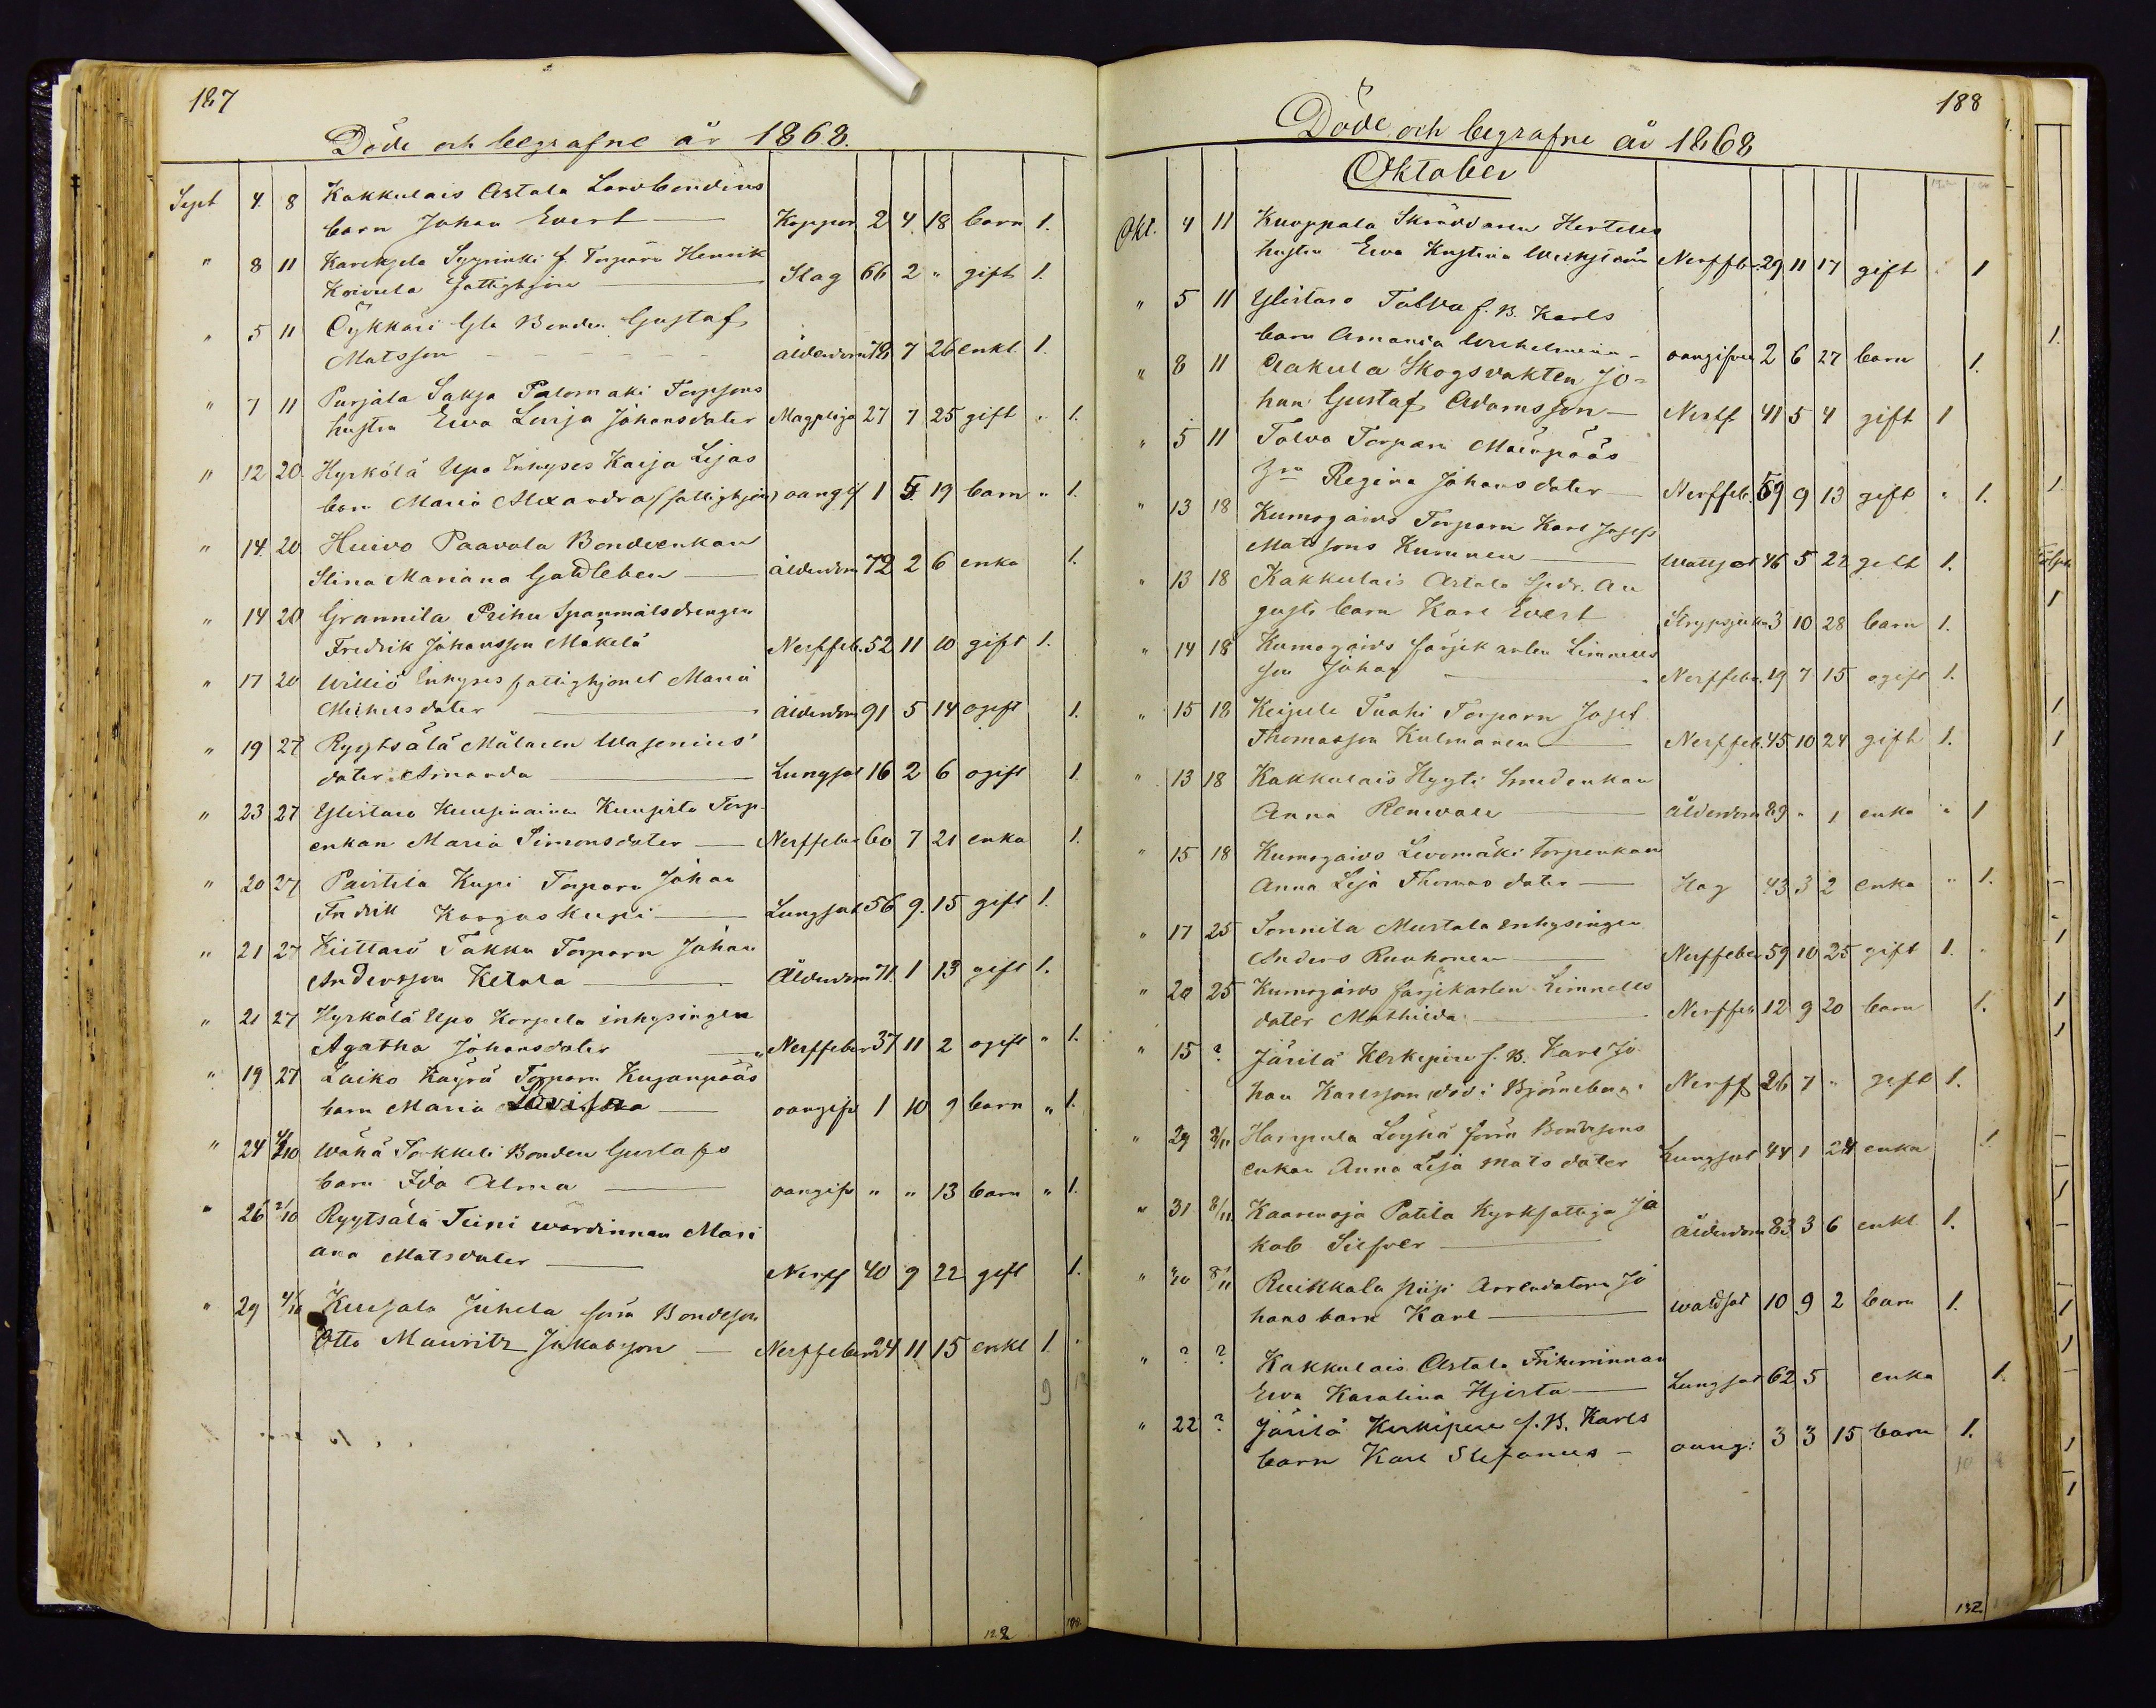 187
Döde och begrafne år 1868.
Sept 4. 8 Kakkulais Astala Landbondens
barn Johan Evert — Koppor 2 4 18 barn 1.
" 8 11 Karhgela Syyrinki f. Torparn Henrik
Koivula fattighjon — Slag 66 2 " gift 1.
" 5 11 Öykkäri Gla Bonden Gustaf
Matsson — Ålderdom 78 7 26 enkl. 1.
" 7 11 Purjala Sakja Palomäki Torpsons
hustru Ewa Lisja Johansdoter Magplåga 27 7 25 gift " 1.
" 12 20. Hyrkölä Upo Inhyses Kaija Lijas
barn Maria Alexandra (fattighjon) oangif 1 5 19 barn " 1.
" 14. 20 Huivo Paavola Bondeenkan
Stina Mariana Gottleben — ålderdom 72 2 6 enka 1.
" 14 20 Grannila Prihu Spanmålsdrengen
Fredrik Johansson Mäkelä Nerffeb. 52 11 10 gift 1.
" 17 20 Williö Inhyses fattighjonet Maria
Michelsdoter — ålderdom 91 5 14 ogift 1.
" 19 27 Ryytsälä Målaren Wasenius'
dater Amanda — Lungsot 16 2 6 ogift 1.
" 23 27 Ylistaro Kuusinainen Kuusisto Torp-
enkan Maria Simonsdoter — Nerffeber 60 7 21 enka 1.
" 20 27 Pavitila Kupi Torparn Johan
Fredrik Kargaskupi — Lungsot 56 9. 15 gift 1.
" 21 27 Kiettarö Takku Torparn Johan
Andersson Ketola — Ålderdom 71. 1 13 gift 1.
" 21 27 Hyrkölä Upo Korpela inhysingen
Agatha Johansdoter — Nerffeber 37 11 2 ogift " 1.
" 19 27 Laiko Käyrä Torparn Kujanpääs
barn Maria Lovisa — oangifv 1 10 9 barn " 1.
" 24 4/10 Wähä Tokkeli Bonden Gustafs
barn Ida Alma — oangifv " " 13 barn " 1.
" 26 2/10 Ryytsälä Tiini wärdinnan Mari
ana Matsdoter — Nerff 40 9 22 gift 1.
" 29 4/10 Kuusola Juhela förra Bondeson
Otto Mauritz Jakobsson — Nerffeber 24 11 15 enkl 1.
9
122
188
Döde och begrafne år 1868
Oktober
Okt. 4 11 Kuoppala Skräddaren Hertells
hustru Ewa Kristina Weckström Nerffeb. 29 11 17 gift 1
" 5 11 Ylistaro Tolwa f. B. Karls
barn Amanda Wilhelmina — oangifven 2 6 27 barn 1.
" 8 11 Aakula Skogsvakten Jo-
han Gustaf Adamsson — Nerff 41 5 4 gift 1
" 5 11 Tolvo Torparn Mäenpääs
Regina Johansdoter — Nerffeb. 59 9 13 gift " 1.
" 13 18 Kumogårds Torparn Karl Josefs
Matssons Kumnen — Wattsot 46 5 22 gift 1.
" 13 18 Kakkulais Astala Au
gusts barn Karl Evert Strypsjukan 3 10 28 barn 1.
" 14 18 Kumogårds färjekarlen Limnells
son Johan — Nerffeber. 19 7 15 ogift 1.
" 15 18 Keipele Tuohi Torparn Josef
Thomasson Kulmanen — Nerffeb. 45 10 24 gift 1.
" 13 18 Kakkulais Hyyti Smedenkan
Anna Renwall — ålderdom 89 " 1 enka " 1
" 15 18 Kumogårds Levomäki Torpenkan
Anna Lisa Thomasdoter — Slag 43 3 2 enka " 1.
" 17 25 Sonnila Mustala inhysingen
Anders Ruohonen — Nerffeber 59 10 25 gift 1. "
" 20 25 Kumogårds färjekarlen Limnells
dater Mathilda — Nerffeb 12 9 20 barn 1.
" 15 ? Järilä Kerkipere f. B. Karl Jo-
han Karlsson död i Björneborg Nerff 26 7 " gift 1.
" 29 8/11 Harypula Löyhä förra Bondesons
enkan Anna Lisa Matsdoter Lungsot 44 1 24 enka 1
" 31 8/11 Kaarenoja Potila Kyrkfattiga Ja
kob Silfver — ålderdom 83 3 6 enkl. 1.
" 8/11 Ruikkala Piisi Arrendatorn Jo
hans barn Karl — wattsot 10 9 2 barn 1.
" ? ? Kakkulais Astala Trikvinnan
Ewa Karolina Hjerta — Lungsot 62 5 enka 1.
" 22 ? Järilä Kerkipere f. B. Karls
barn Karl Stefanus — oang: 3 3 15 barn 1.
10
132